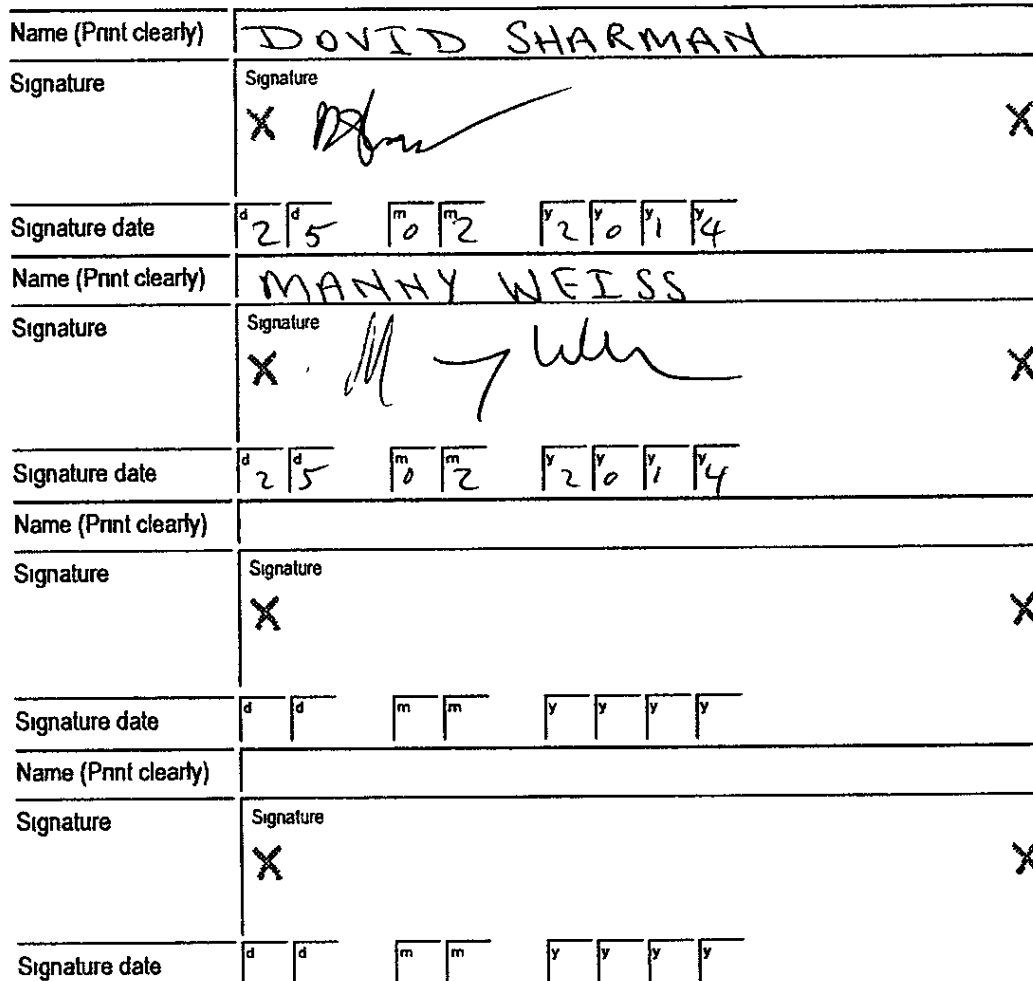 Name (Print clearly) DOVID SHARMAN
Signature Signature
X X
Signature date d2 d5 m0 m2 y2 y0 y1 y4
Name (Print clearly) MANNY WEISS
Signature Signature
X X
Signature date d2 d5 m0 m2 y2 y0 y1 y4
Name (Print clearly)
Signature Signature
X X
Signature date d d m m y y y y
Name (Print clearly)
Signature Signature
X X
Signature date d d m m y y y y